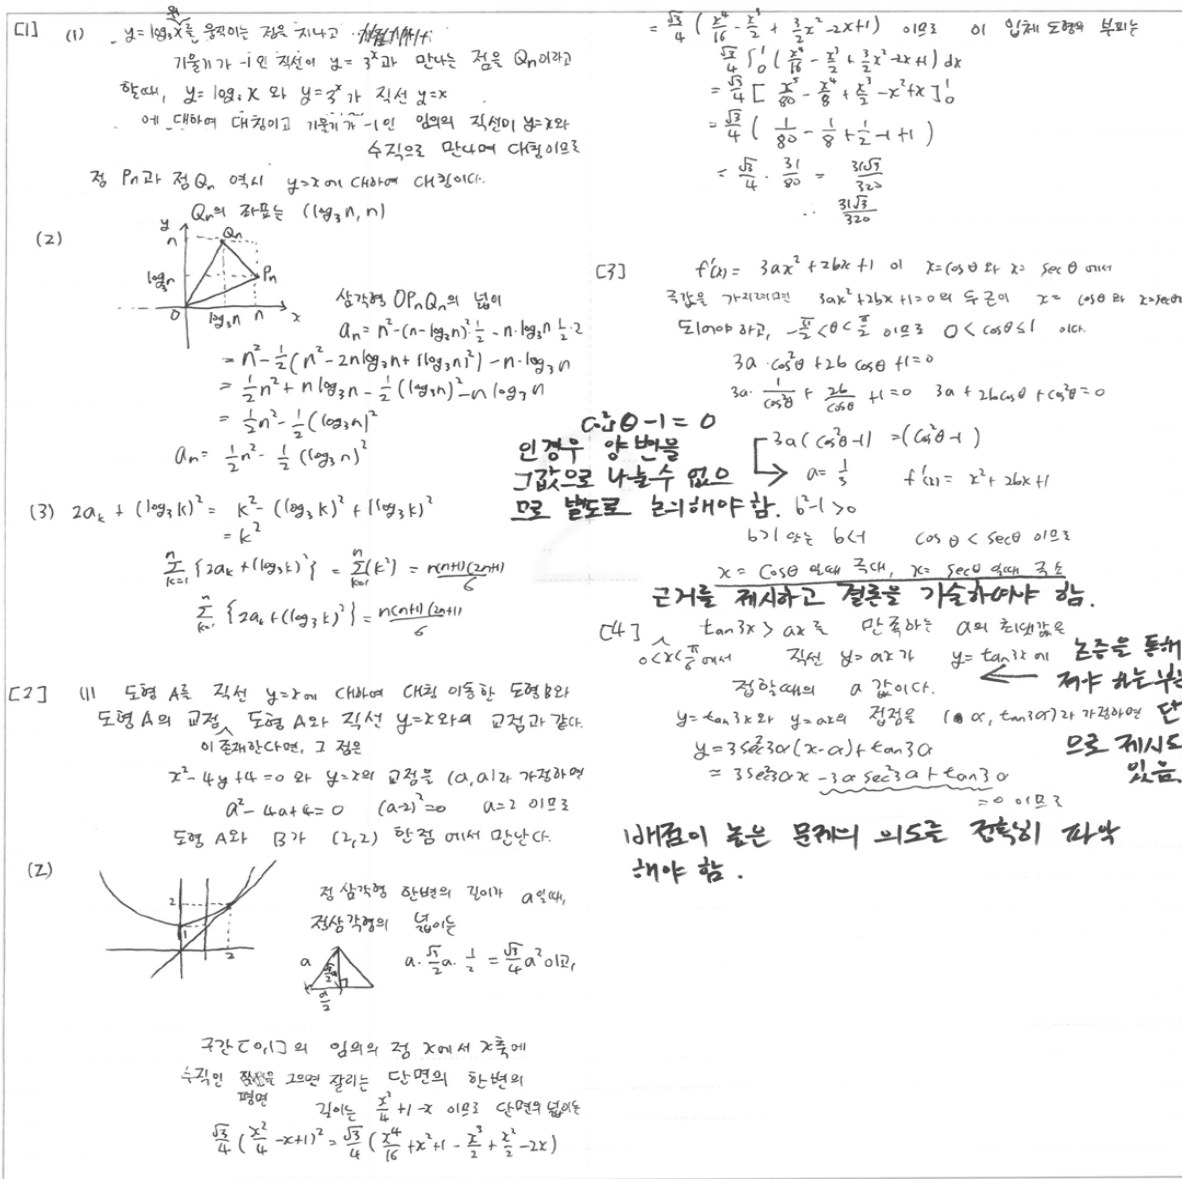 [1] (1) y=log₃x를 움직이는 점을 지나고
기울기가 -1인 직선이 y=3ˣ과 만나는 점을 Qn이라고
할때, y=log₃x 와 y=3ˣ가 직선 y=x
에 대하여 대칭이고 기울기가 -1인 임의의 직선이 y=x와
수직으로 만나며 대칭이므로
점 Pn과 점 Qn 역시 y=x에 대하여 대칭이다.
Qn의 좌표는 (log₃n, n)
(2)
y
n
Qn
log₃n
Pn
0 log₃n n x
삼각형 OPnQn의 넓이
an = n²-(n-log₃n)²·½ - n·log₃n·½·2
= n² - ½(n² - 2nlog₃n + (log₃n)²) - n·log₃n
= ½n² + nlog₃n - ½(log₃n)² - nlog₃n
= ½n² - ½(log₃n)²
an = ½n² - ½(log₃n)²
(3) 2ak + (log₃k)² = k² - (log₃k)² + (log₃k)²
= k²
Σ(k=1→n) {2ak + (log₃k)²} = Σ(k=1→n) (k²) = n(n+1)(2n+1)/6
Σ(k=1→n) {2ak + (log₃k)²} = n(n+1)(2n+1)/6
[2] (1) 도형 A를 직선 y=x에 대하여 대칭 이동한 도형 B와
도형 A의 교점 도형 A와 직선 y=x와의 교점과 같다.
이 존재한다면, 그 점은
x²-4y+4=0 와 y=x의 교점을 (a,a)라 가정하면
a²-4a+4=0 (a-2)²=0 a=2 이므로
도형 A와 B가 (2,2) 한점에서 만난다.
(2)
2
1
2
정삼각형 한변의 길이가 a일때,
정삼각형의 넓이는
a
√3/2 a
a/2
a·√3/2 a·½ = √3/4 a² 이고,
구간 [0,1]의 임의의 점 x에서 x축에
수직인 평면을 그으면 잘리는 단면의 한변의
길이는 x²/4 +1-x 이므로 단면의 넓이는
√3/4 (x²/4 -x+1)² = √3/4 (x⁴/16 + x² + 1 - x³/2 + x²/2 - 2x)
= √3/4 (x⁴/16 - x³/2 + 3/2 x² - 2x + 1) 이므로 이 입체 도형의 부피는
√3/4 ∫₀¹ (x⁴/16 - x³/2 + 3/2 x² - 2x + 1) dx
= √3/4 [x⁵/80 - x⁴/8 + x³/2 - x² + x]₀¹
= √3/4 (1/80 - 1/8 + 1/2 - 1 + 1)
= √3/4 · 31/80 = 31√3/320
∴ 31√3/320
[3] f'(x) = 3ax²+2bx+1 이 x=cosθ 와 x=secθ에서
극값을 가지려면 3ax²+2bx+1=0의 두 근이 x=cosθ 와 x=secθ
되어야 하고, -π/2<θ<π/2 이므로 0<cosθ≤1 이다.
3a·cos²θ+2b cosθ+1=0
3a·1/cos²θ + 2b/cosθ +1=0 3a+2bcosθ+cos²θ=0
cos²θ-1=0
인 경우 양변을
그값으로 나눌수 없으
므로 별도로 논의해야 함.
3a(cos²θ-1) = (cos²θ-1)
a=1/3 f'(x)= x²+2bx+1
b²-1>0
b>1 또는 b<-1 cosθ<secθ 이므로
x=cosθ 일때 극대, x=secθ 일때 극소
근거를 제시하고 결론을 기술하여야 함.
[4] tan3x>ax를 만족하는 a의 최댓값은
0<x<π/6에서 직선 y=ax가 y=tan3x에
접할때의 a값이다.
논증을 통해
져야 하는 부분
단
으로 제시되
있음.
y=tan3x와 y=ax의 접점을 (α, tan3α)라 가정하면
y=3sec²3α(x-α)+tan3α
= 3sec²3αx -3αsec²3α+tan3α
=0 이므로
배점이 높은 문제의 의도를 정확히 파악
해야 함.